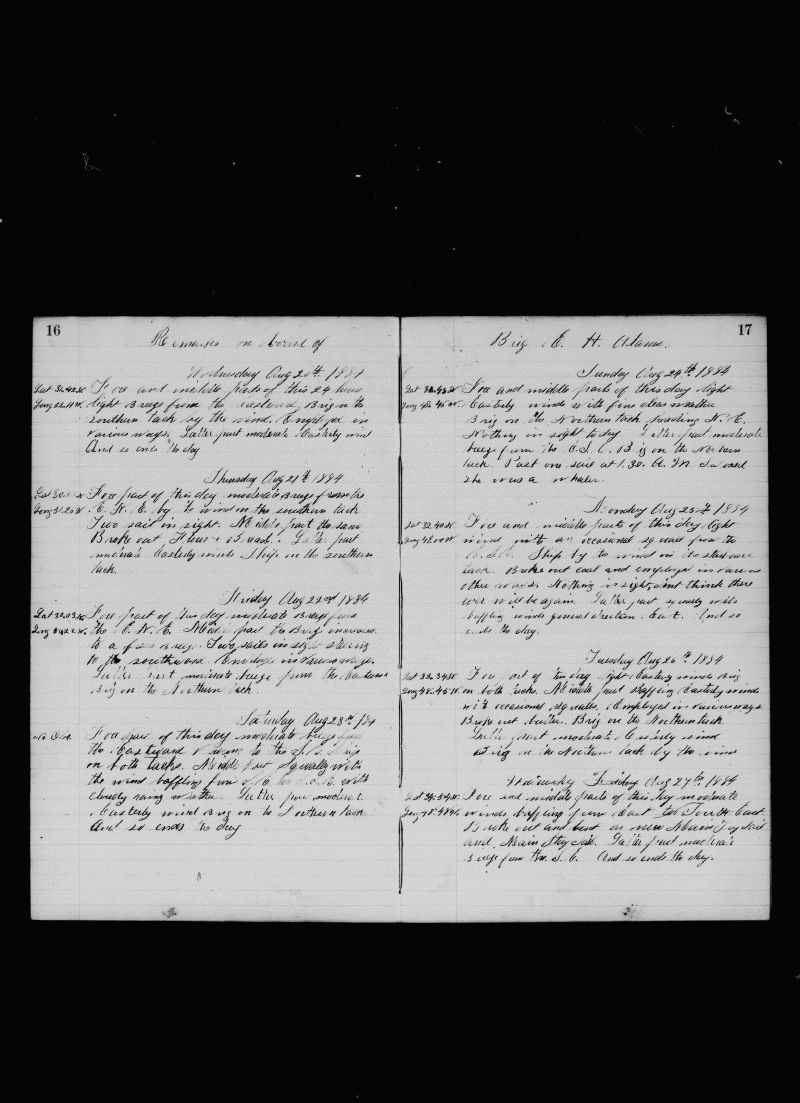 16
Remarks on board of
Wednesday Aug 20th 1884
Fore and middle parts of this 24 hours
light Breeze from the Eastward Brig on the
southern tack by the wind. Employed in
various ways. Latter part moderate Easterly wind
And so ends the day
Thursday Aug 21st 1884
Fore part of this day moderate Breeze from the
E. N. E. by the wind on the southern tack
Two sail in sight. Middle part the same
Broke out Flour & Bread. Latter part
moderate Easterly winds Ship on the southern
tack.
Friday Aug 22nd 1884
Fore part of this day moderate Breeze from
the E. N. E. Middle part the Breeze increased
to a fresh Breeze. Two sails in sight steering
to the southward. Employed in various ways.
Latter part moderate breeze from the Eastward
Brig on the Northern tack.
Saturday Aug 23rd 1884
No Obs.
Fore part of this day moderate breeze from
the Eastward
on both tacks. Middle part Squally with
the wind baffling from with
cloudy rainy weather. Latter part moderate
Easterly wind Brig on the Northern tack
And so ends the day
17
Brig E. H. Adams.
Sunday Aug 24th 1884
Fore and middle parts of this day light
Easterly winds with fine clear weather
Brig on the Northern tack heading N. E.
Nothing in sight to day. Latter part moderate
breeze from the E.S.E. Brig on the Northern
tack. Past one sail at 1.30 A.M.
she was a whaler.
Monday Aug 25th 1884
Lat 32.40 N
Long 48.00 W
Fore and middle parts of this day light
wind with an occasional squall from the
Ship by the wind on the starboard
tack. Broke out coal and employed in various
other ways. Nothing in sight, aint think there
ever will be again. Latter part squally with
baffling winds general direction East. And so
ends the day.
Tuesday Aug 26th 1884
Lat 33.34 N
Long 48.45 W
Fore part of this day light Easterly winds Brig
on both tacks. Middle part Baffling Easterly winds
with occasional squalls. Employed in various ways
Broke out butter. Brig on the Northern tack
Latter part moderate Easterly wind
Brig on the Northern tack by the wind
Wednesday Friday Aug 27th 1884
Fore and middle parts of this day moderate
winds baffling from East to South East.
Broke out and bent on new Main Try Sail
and Main Stay Sail. Latter part moderate
Breeze from the S.E. And so ends the day.